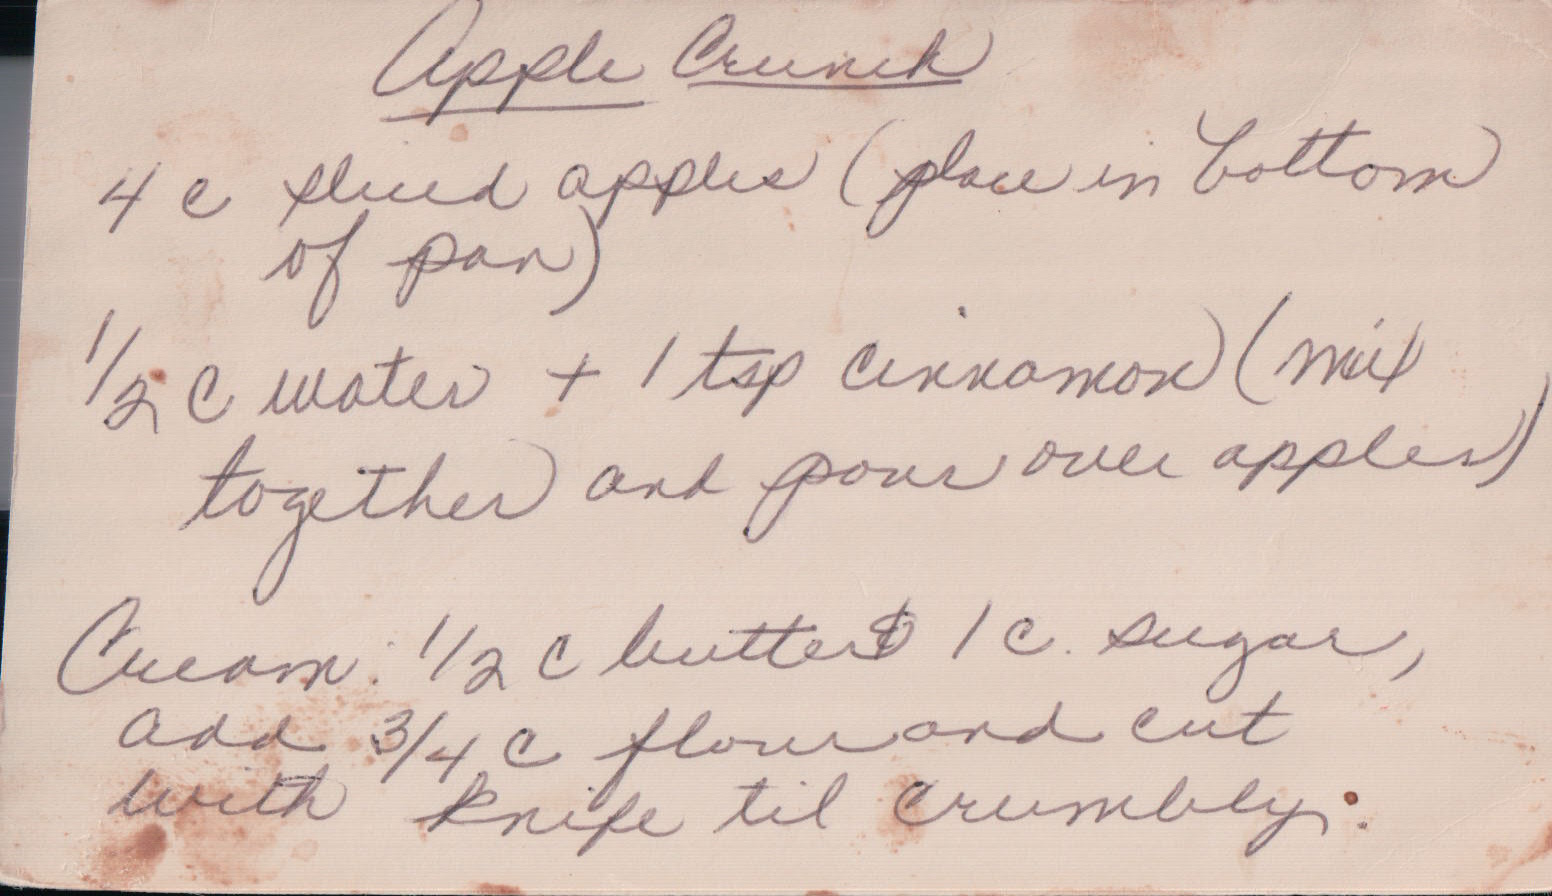 Apple Crunch
4 c sliced apples (place in bottom
of pan)
1/2 c water + 1 tsp cinnamon (mix
together and pour over apples)
Cream: 1/2 c butter & 1 c. sugar,
add 3/4 c flour and cut
with knife til crumbly.